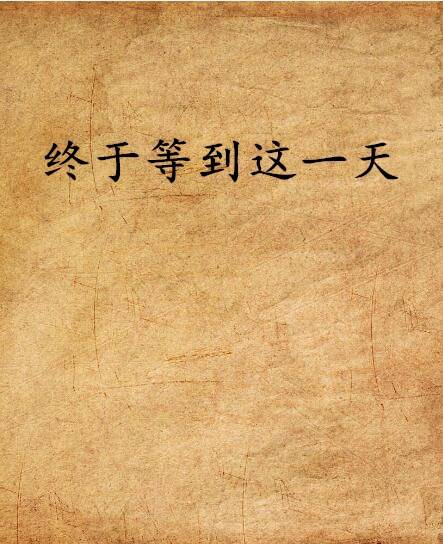 终于等到这一天